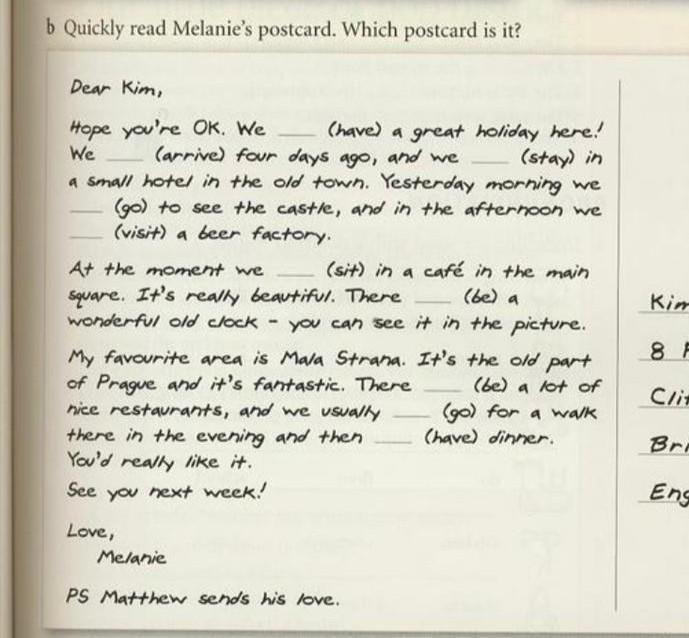 b Quickly read Melanie's postcard. Which postcard is it?
Dear Kim,
Hope you're OK. We ____ (have) a great holiday here!
We ____ (arrive) four days ago, and we ____ (stay) in
a small hotel in the old town. Yesterday morning we
____ (go) to see the castle, and in the afternoon we
____ (visit) a beer factory.
At the moment we ____ (sit) in a café in the main
square. It's really beautiful. There ____ (be) a
wonderful old clock – you can see it in the picture.
My favourite area is Mala Strana. It's the old part
of Prague and it's fantastic. There ____ (be) a lot of
nice restaurants, and we usually ____ (go) for a walk
there in the evening and then ____ (have) dinner.
You'd really like it.
See you next week!
Love,
Melanie
PS Matthew sends his love.
Kim
8